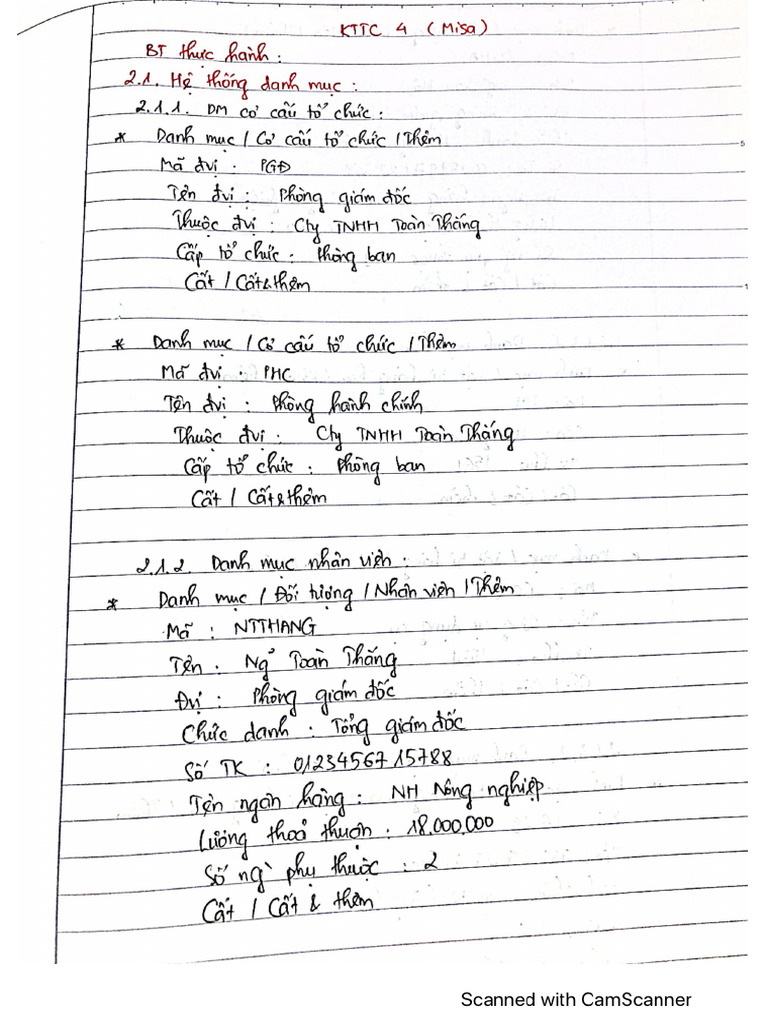 KTTC 4 (Misa)
BT thực hành :
2.1. Hệ thống danh mục :
2.1.1. DM cơ cấu tổ chức :
* Danh mục / Cơ cấu tổ chức / Thêm
Mã đvị : PGĐ
Tên đvị : Phòng giám đốc
Thuộc đvị : Cty TNHH Toàn Thắng
Cấp tổ chức : Phòng ban
Cất / Cất & thêm
* Danh mục / Cơ cấu tổ chức / Thêm
Mã đvị : PHC
Tên đvị : Phòng hành chính
Thuộc đvị : Cty TNHH Toàn Thắng
Cấp tổ chức : Phòng ban
Cất / Cất & thêm
2.1.2. Danh mục nhân viên :
* Danh mục / Đối tượng / Nhân viên / Thêm
Mã : NTTHANG
Tên : Ng~ Toàn Thắng
Đvị : Phòng giám đốc
Chức danh : Tổng giám đốc
Số TK : 0123456715788
Tên ngân hàng : NH Nông nghiệp
Lương thoả thuận : 18.000.000
Số ng` phụ thuộc : 2
Cất / Cất & thêm
Scanned with CamScanner